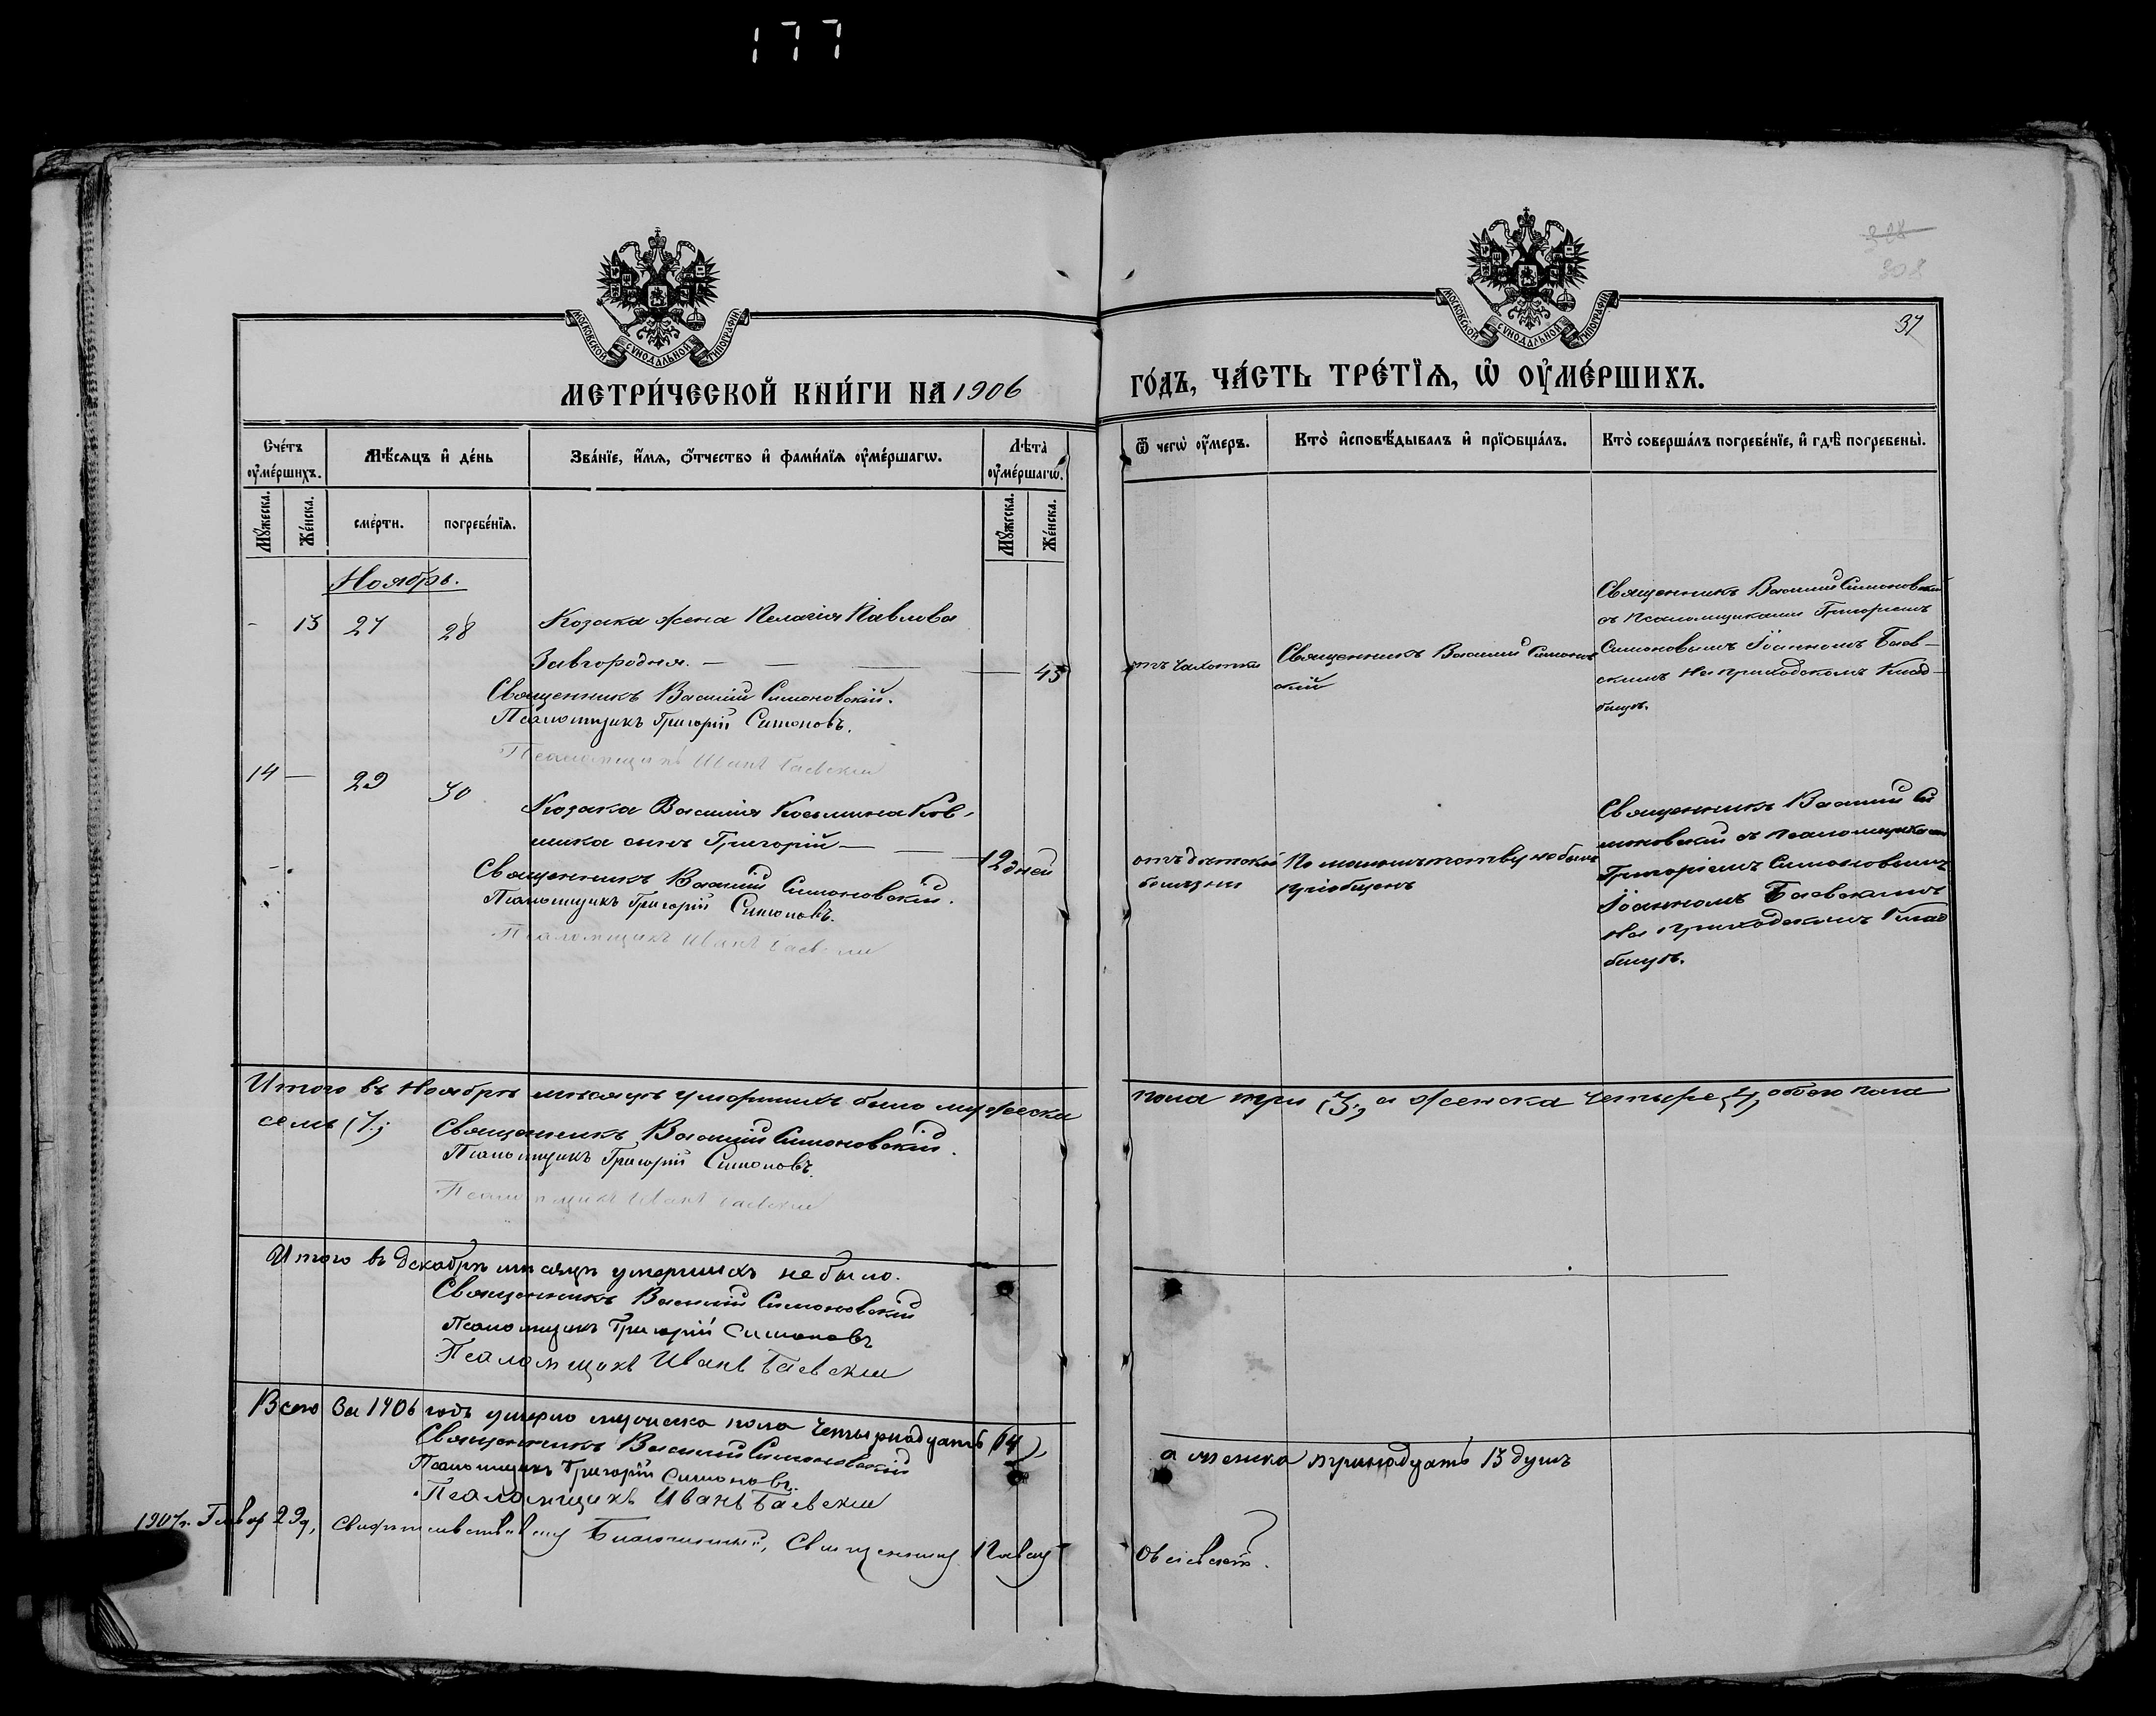 177
308
37
МОСКОВСКОЙ СѴНОДАЛЬНОЙ ТИПОГРАФІИ
МОСКОВСКОЙ СѴНОДАЛЬНОЙ ТИПОГРАФІИ
МЕТРИ́ЧЕСКОЙ КНИ́ГИ НА 1906
ГО́ДЪ, ЧА́СТЬ ТРЕ́ТЇѦ, Ѡ҆ ОУ҆МЕ́РШИХЪ.
Сче́тъ оу҆ме́ршихъ.
Мѣ́сѧцъ и҆ де́нь
Зва́нїе, и҆́мѧ, ѻ҆́тчество и҆ фами́лїѧ оу҆ме́ршагѡ.
Лѣ́та оу҆ме́ршагѡ.
Мꙋ́жеска.
Же́нска.
сме́рти.
погребе́нїѧ.
Мꙋ́жеска.
Же́нска.
Ѿ чегѡ̀ оу҆́меръ.
Кто̀ и҆сповѣ́дывалъ и҆ прїѻбща́лъ.
Кто̀ соверша́лъ погребе́нїе, и҆ гдѣ̀ погребены̀.
Ноябрь.
- 13 27 28 Козака жена Пелагія Павлова
Завгородняя. — — — — 45
Священникъ Василій Симоновскій.
Псаломщикъ Григорій Симоновъ.
Псаломщикъ Иванъ Баевскій
отъ чахотки
Священникъ Василій Симонов
скій
Священникъ Василій Симоновскій
съ псаломщиками Григоріемъ
Симоновымъ Іоанномъ Баев-
скимъ на приходскомъ клад-
бищѣ.
14 — 29 30
Козака Василія Косьмина Ков-
шика сынъ Григорій — — 12 дней
Священникъ Василій Симоновскій.
Псаломщикъ Григорій Симоновъ.
Псаломщикъ Иванъ Баевскій
отъ дѣтской
болѣзни
По малолѣтству не былъ
пріобщенъ
Священникъ Василій Си
моновскій съ псаломщиками
Григоріемъ Симоновымъ
Іоанномъ Баевскимъ
на приходскомъ клад
бищѣ.
Итого въ Ноябрѣ мѣсяцѣ умершихъ было мужеска
пола три (3), а женска четыре (4) обоего пола
семь (7.)
Священникъ Василій Симоновскій.
Псаломщикъ Григорій Симоновъ.
Псаломщикъ Иванъ Баевскій
Итого въ декабрѣ мѣсяцѣ умершихъ не было.
Священникъ Василій Симоновскій
Псаломщикъ Григорій Симоновъ
Псаломщикъ Иванъ Баевскій
Всего за 1906 годъ умерло мужеска пола четырнадцать (14),
а женска тринадцать 13 душъ
Священникъ Василій Симоновскій
Псаломщикъ Григорій Симоновъ.
Псаломщикъ Иванъ Баевскій
1907 г. Январ 29 д,